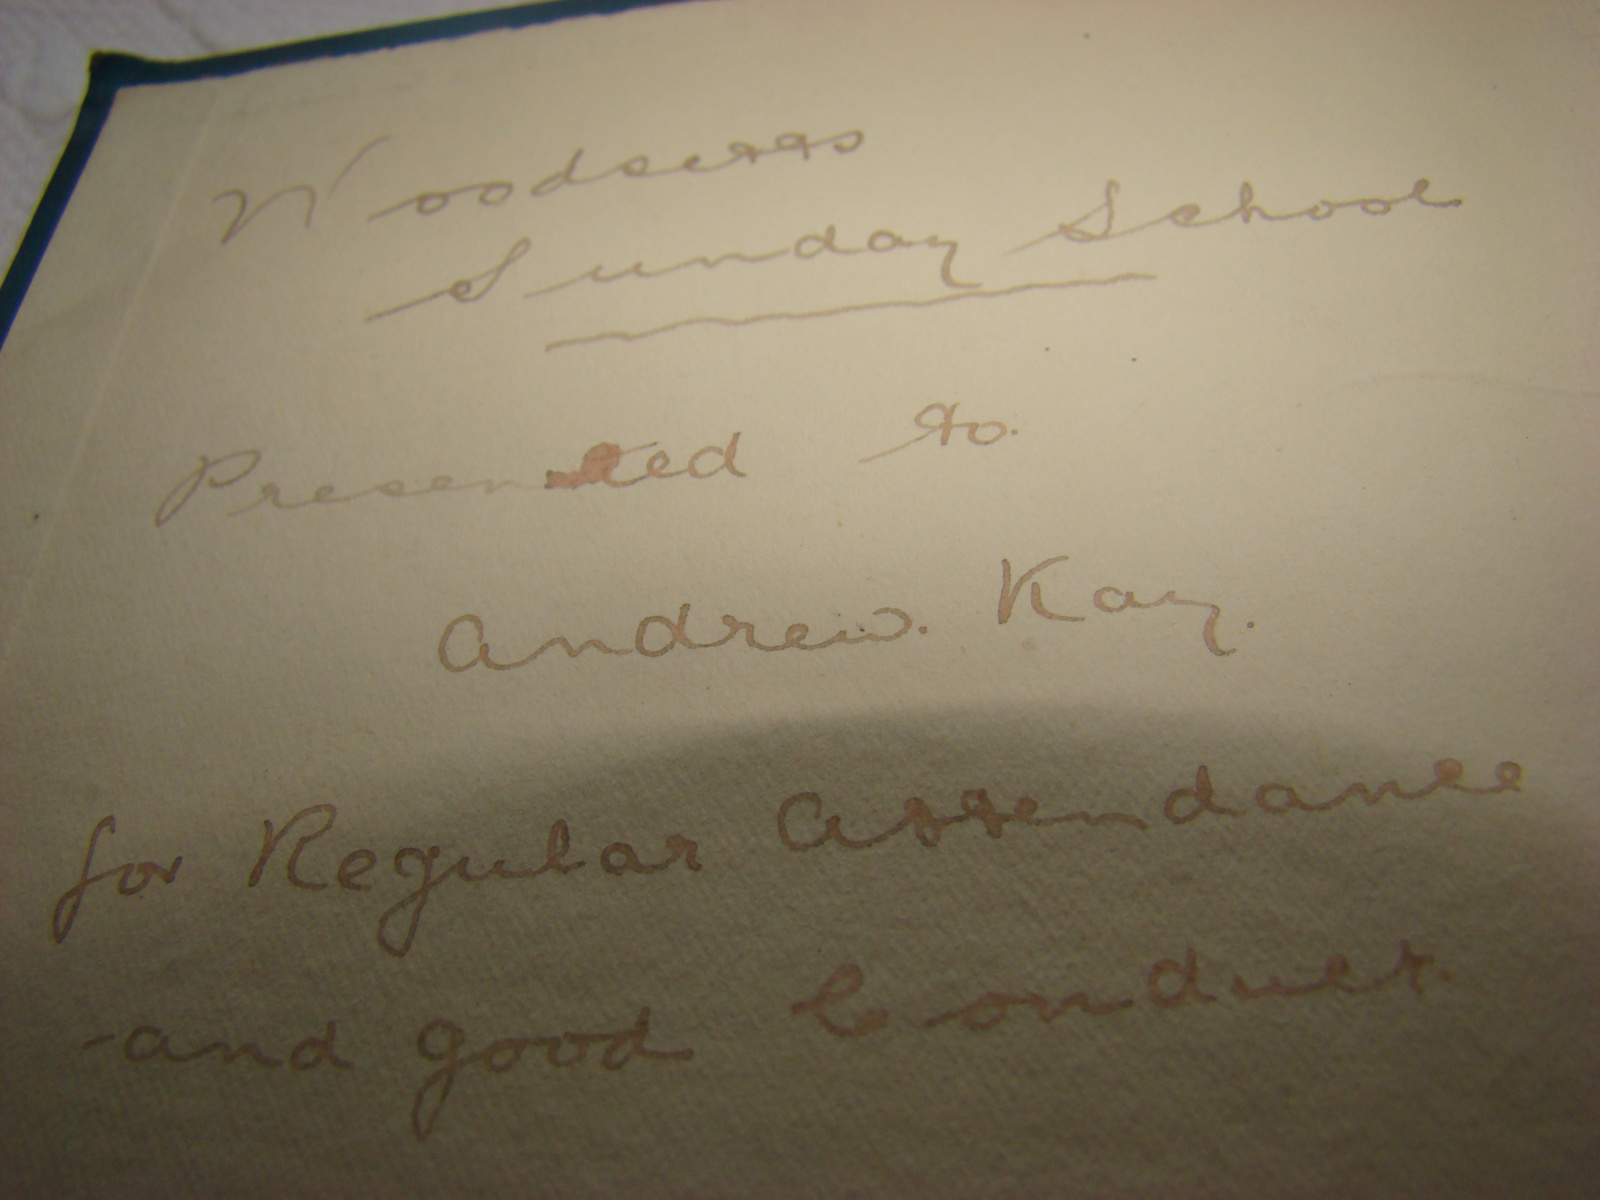 Woodsetts
Sunday School
Presented to.
Andrew. Kay.
for Regular Attendance
-and good Conduct